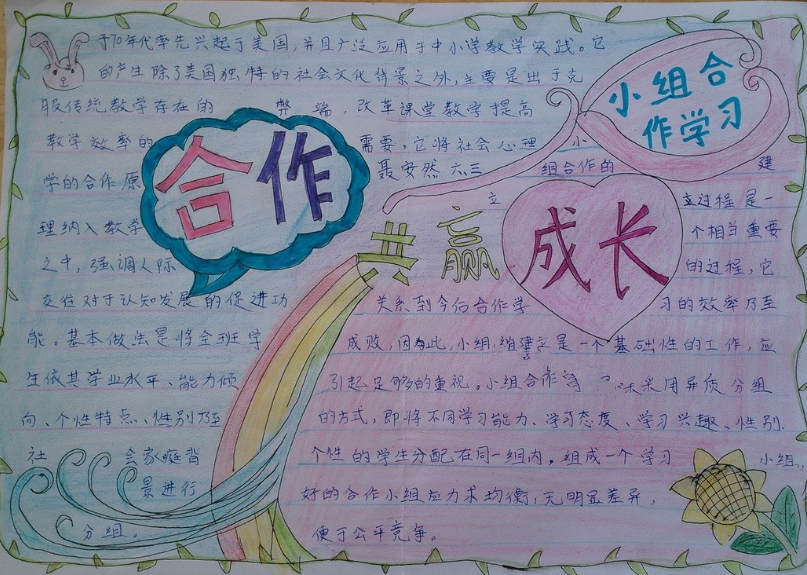 小组合
作学习
合作
共赢成长
于70年代率先兴起于美国,并且广泛应用于中小学教学实践。它
的产生除了美国独特的社会文化背景之外,主要是出于克
服传统教学存在的 弊端,改革课堂教学提高
教学效率的 需要。它将社会心理
学的合作原
理纳入教学
之中,强调人际
交往对于认知发展的促进功
能。基本做法是将全班学
生依其学业水平、能力倾
向、个性特点、性别乃至
社 会家庭背
景进行
分组。
聂安然 六三
小
组合作的 建
立 立过程是一
个相当重要
的过程,它
关系到今后合作学 习的效率乃至
成败,因为此,小组 建立是一个基础性的工作,应
引起足够的重视。小组合作 采用异质分组
的方式,即将不同学习能力、学习态度、学习兴趣、性别、
个性的学生分配在同一组内。组成一个学习 小组,
好的合作小组应力求均衡,无明显差异,
便于公平竞争。